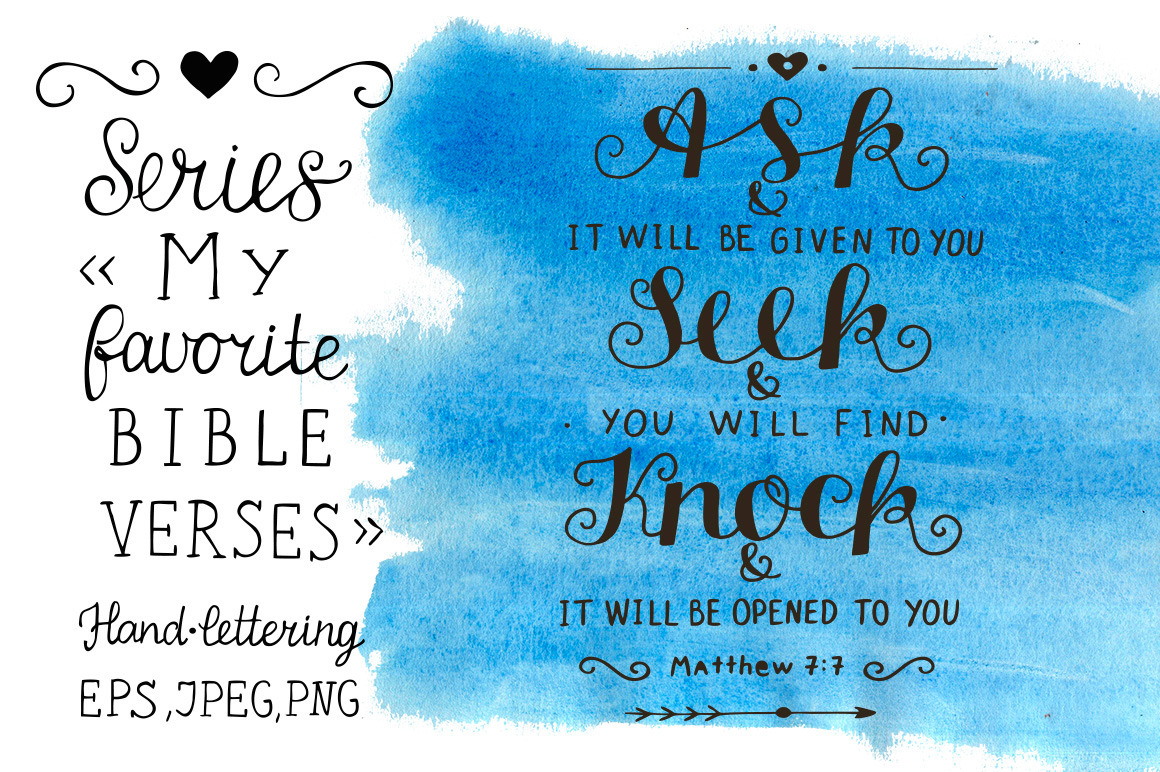 Series
« My
favorite
BIBLE
VERSES »
Hand·lettering
EPS, JPEG, PNG
Ask
&
IT WILL BE GIVEN TO YOU
Seek
&
· YOU WILL FIND ·
Knock
&
IT WILL BE OPENED TO YOU
Matthew 7:7